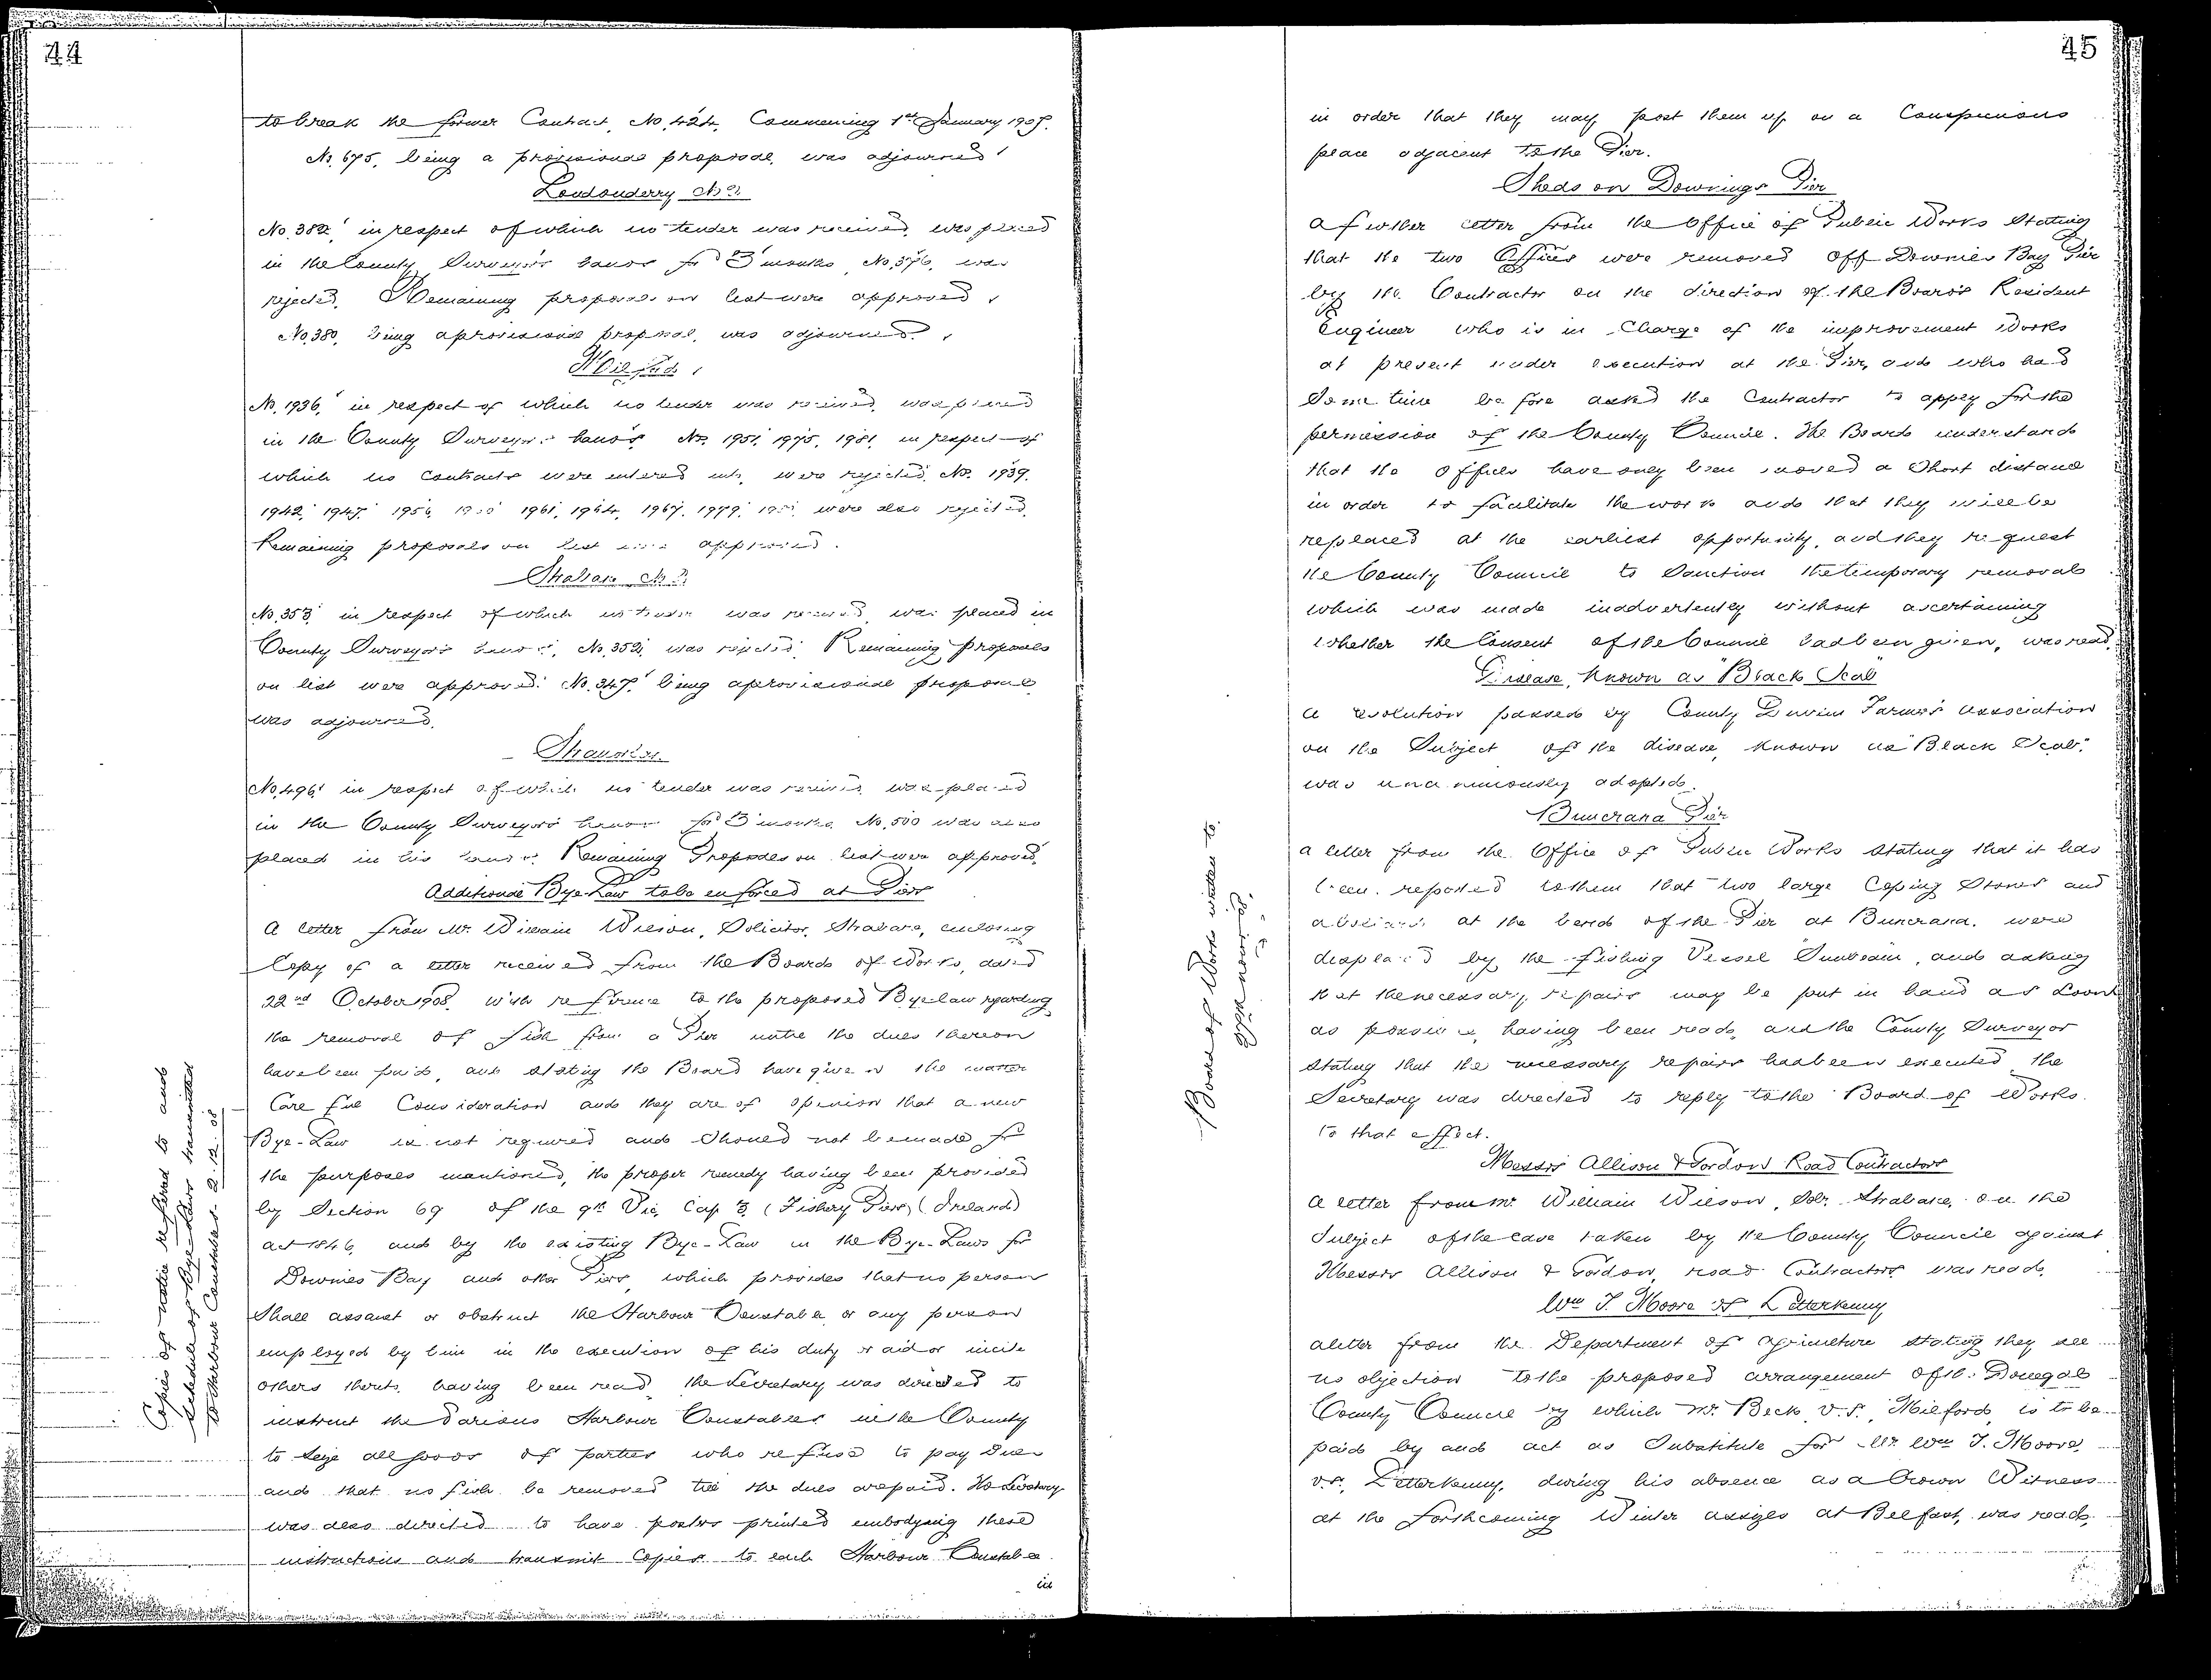 44
to break the former Contract, No. 424, Commencing 1st January 1907.
No. 675, being a provisional proposal, was adjourned.
Londonderry No 2.
No. 382, in respect of which no tender was received, was placed
in the County Surveyor's hands for 3 months, No. 376, was
rejected. Remaining proposals on list were approved.
No. 380, being a provisional proposal, was adjourned.
Milford.
No. 1936, in respect of which no tender was received, was placed
in the County Surveyor's hands, No. 1951, 1975, 1981, in respect of
which no Contracts were entered into, were rejected. No. 1939,
1942, 1947, 1961, 1964, 1967, 1979, were also rejected.
Remaining proposals on list were approved.
Strabane No 2.
No. 353, in respect of which no tender was received, was placed in
County Surveyor's hands, No. 352, was rejected. Remaining proposals
on list were approved. No. 347, being a provisional proposal
was adjourned.
Stranorlar.
No. 496, in respect of which no tender was received, was placed
in the County Surveyor's hands for 3 months, No. 500 was also
placed in his hands. Remaining Proposals on list were approved.
Additional Bye-Law to be enforced at Piers
A letter from Mr. William Wilson, Solicitor, Strabane, enclosing
Copy of a letter received from the Board of Works, dated
22nd October 1908, with reference to the proposed Bye law regarding
the removal of fish from a Pier until the dues thereon
have been paid, and stating the Board have given the matter
Careful Consideration and they are of opinion that a new
Bye-Law is not required and should not be made for
the purposes mentioned, the proper remedy having been provided
by Section 69 of the 9th Vic. Cap 3 (Fishery Piers) (Ireland)
act 1846, and by the existing Bye-Law in the Bye-Laws for
Downies Bay and other Piers, which provides that no person
Shall assault or obstruct the Harbour Constable, or any person
employed by him in the execution of his duty or aid or incite
others thereto, having been read, the Secretary was directed to
instruct the various Harbour Constables in the County
to seize all goods of parties who refuse to pay Dues
and that no fish be removed till the dues are paid. The Secretary
was also directed to have posters printed embodying these
instructions and transmit Copies to each Harbour Constable
in
Copies of notice referred to and
Schedule of Bye-Laws transmitted
to Harbour Constables. 2.12.08
45
in order that they may post them up on a Conspicuous
place adjacent to the Pier.
Sheds on Downings Pier
A further letter from the Office of Public Works Stating
that the two Offices were removed off Downies Bay Pier
by the Contractor on the direction of the Board's Resident
Engineer who is in Charge of the improvement Works
at present under execution at the Pier, and who had
Some time before asked the Contractor to apply for the
permission of the County Council. The Board understand
that the Offices have only been moved a Short distance
in order to facilitate the work and that they will be
replaced at the earliest opportunity, and they request
the County Council to Sanction the temporary removal
which was made inadvertently without ascertaining
whether the Consent of the Council had been given, was read.
Disease, Known as "Black Scab"
A resolution passed by County Farmers Association
on the Subject of the disease, Known as "Black Scab"
was unanimously adopted.
Buncrana Pier
A letter from the Office of Public Works Stating that it has
been reported to them that two large Coping Stones and
at the bend of the Pier at Buncrana, were
displaced by the Fishing Vessel Sunbeam, and asking
that the necessary repairs may be put in hand as Soon
as possible, having been read, and the County Surveyor
Stating that the necessary repairs had been executed the
Secretary was directed to reply to the Board of Works
to that effect.
Board of Works written to
Messrs Allison & Gordon Road Contractors
A letter from Mr. William Wilson, Solr. Strabane, on the
Subject of the case taken by the County Council against
Messrs Allison & Gordon, road Contractors was read.
Wm J. Moore of Letterkenny
A letter from the Department of Agriculture Stating they see
no objection to the proposed arrangement of the Donegal
County Council by which Mr. Beck, V.S., Milford, is to be
paid by and act as Substitute for Mr. Wm J. Moore,
V.S., Letterkenny, during his absence as a Crown Witness
at the Forthcoming Winter assizes at Belfast, was read.